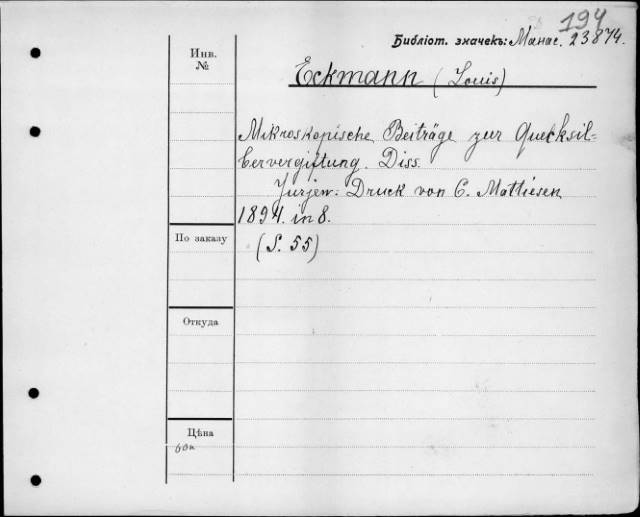 194
Библіот. значекъ: Манас. 23874.
Инв.
№
Eckmann (Louis)
Mikroskopische Beiträge zur Quecksil-
bervergiftung. Diss.
Jurjew: Druck von C. Mattiesen
1894. in 8.
По заказу
(S. 55)
Откуда
Цѣна
60к